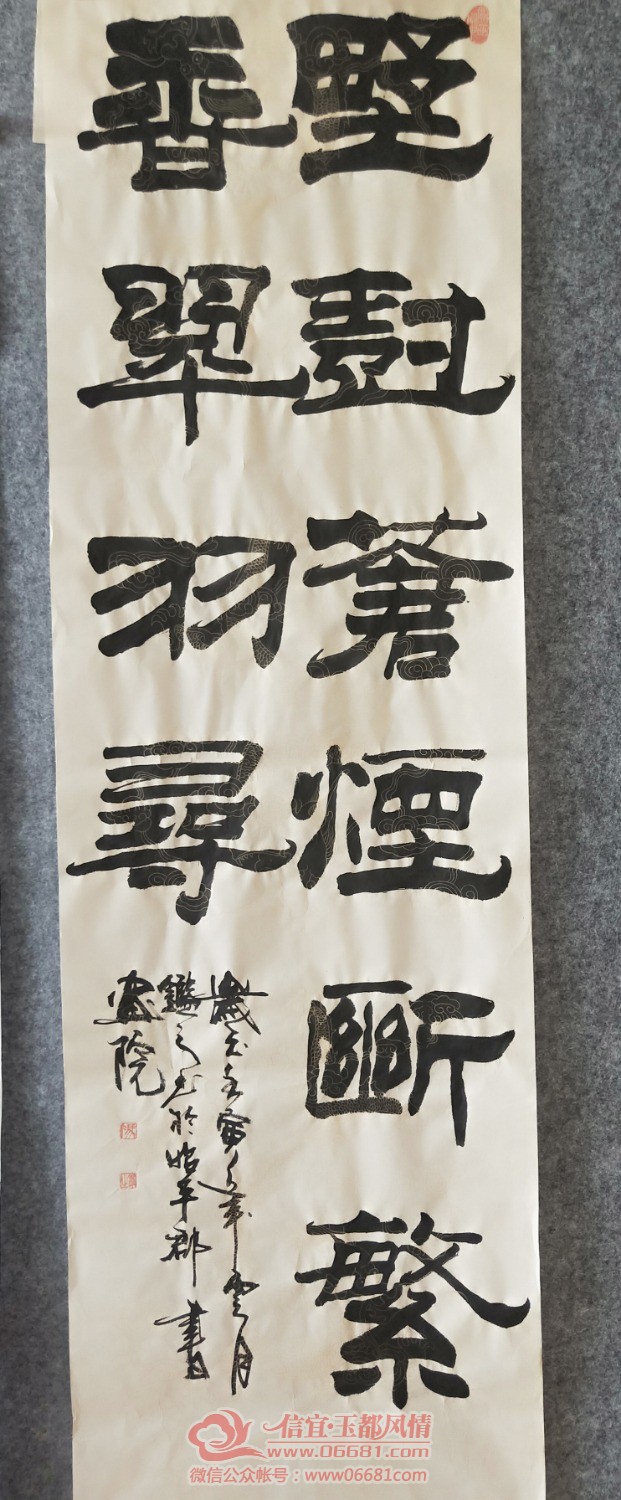 墅尌蒼煙斷繁
香翠羽尋
歲在壬寅年月
鑑之書於昭平郡書
畫院
信宜·玉都风情
www.06681.com
微信公众帐号：www06681com